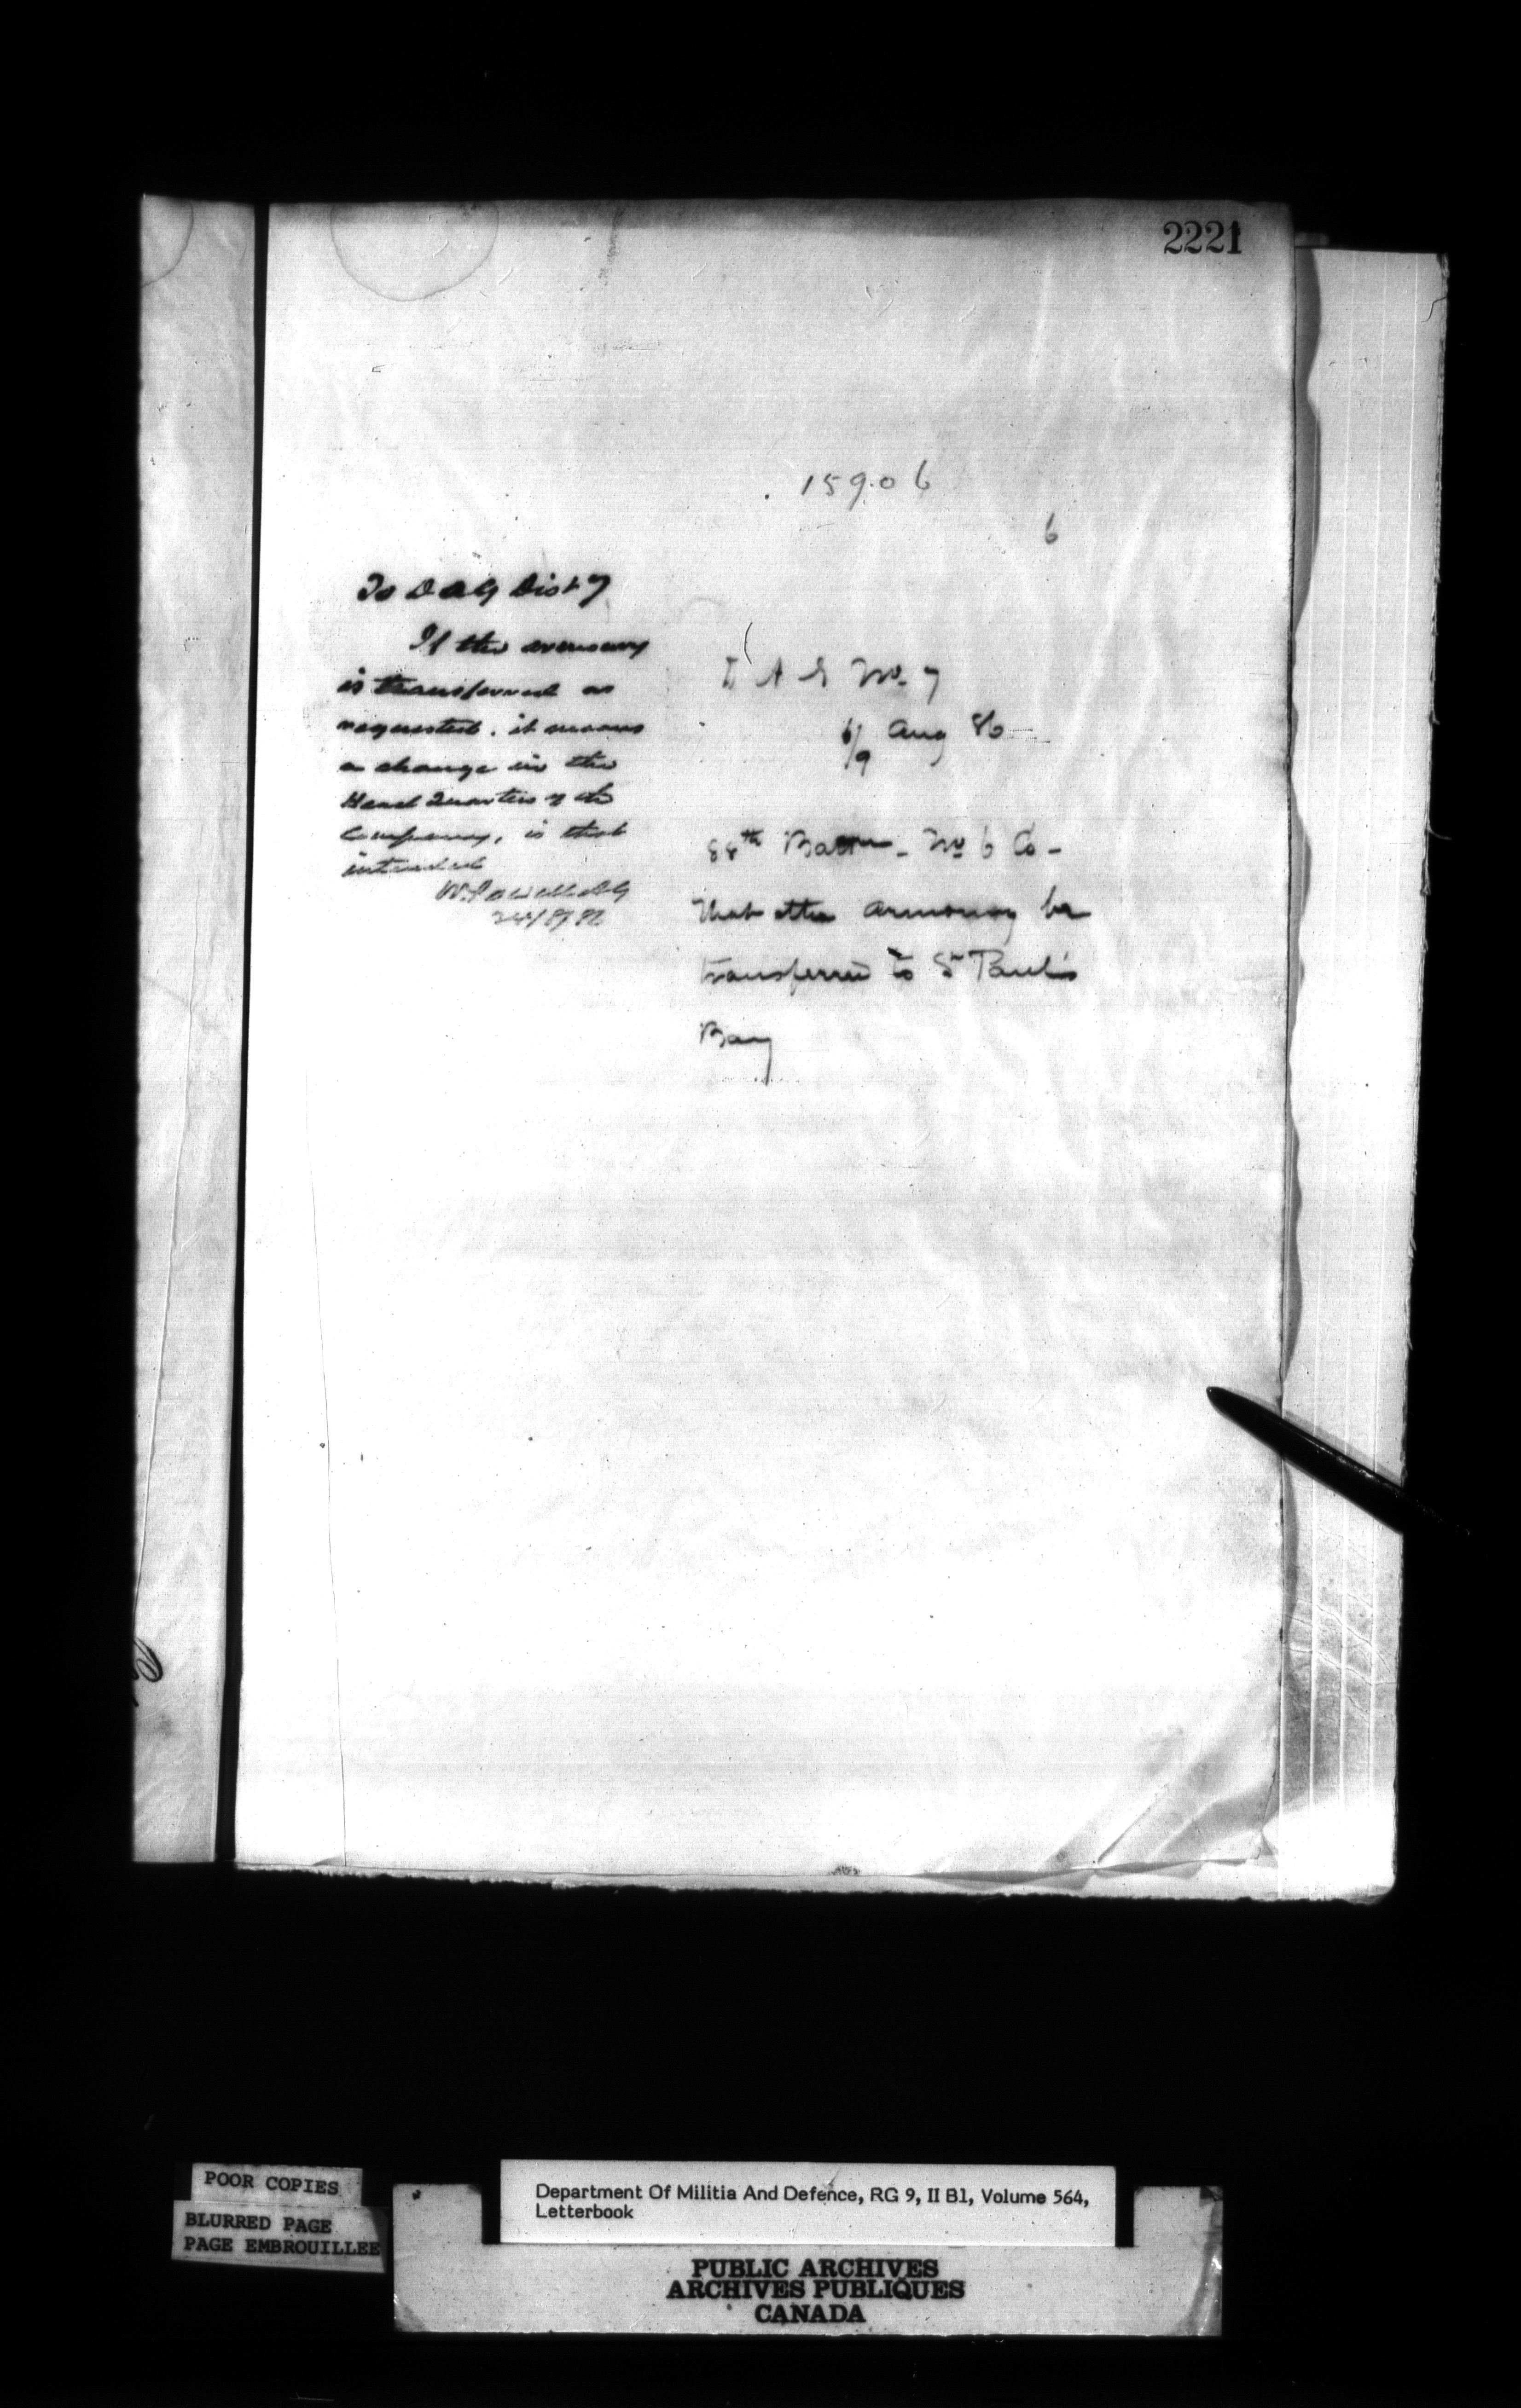 2221
15906
6
To D A G Dist 7
If the armoury
is transferred as
requested, it means
a change in the
Head Quarters of the
Company, is that
intended
W. Powell A G
D A G No. 7
Aug 86
88th Battn - No 6 Co -
That the armoury be
transferred to St Paul's
Bay
POOR COPIES
BLURRED PAGE
PAGE EMBROUILLEE
Department Of Militia And Defence, RG 9, II B1, Volume 564,
Letterbook
PUBLIC ARCHIVES
ARCHIVES PUBLIQUES
CANADA